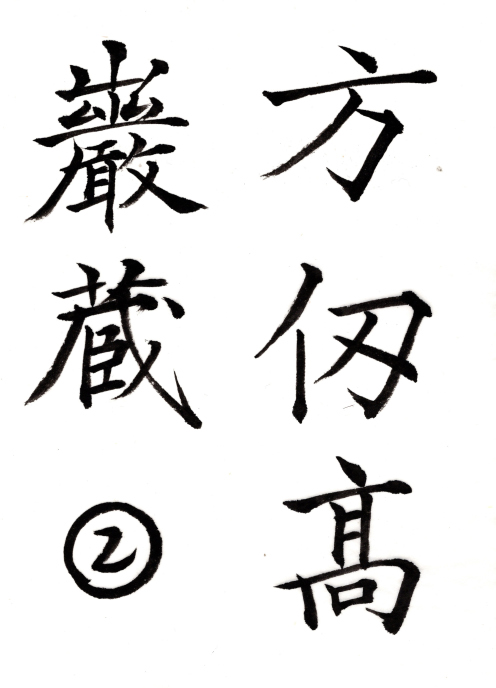 方仭髙
巖蔵②